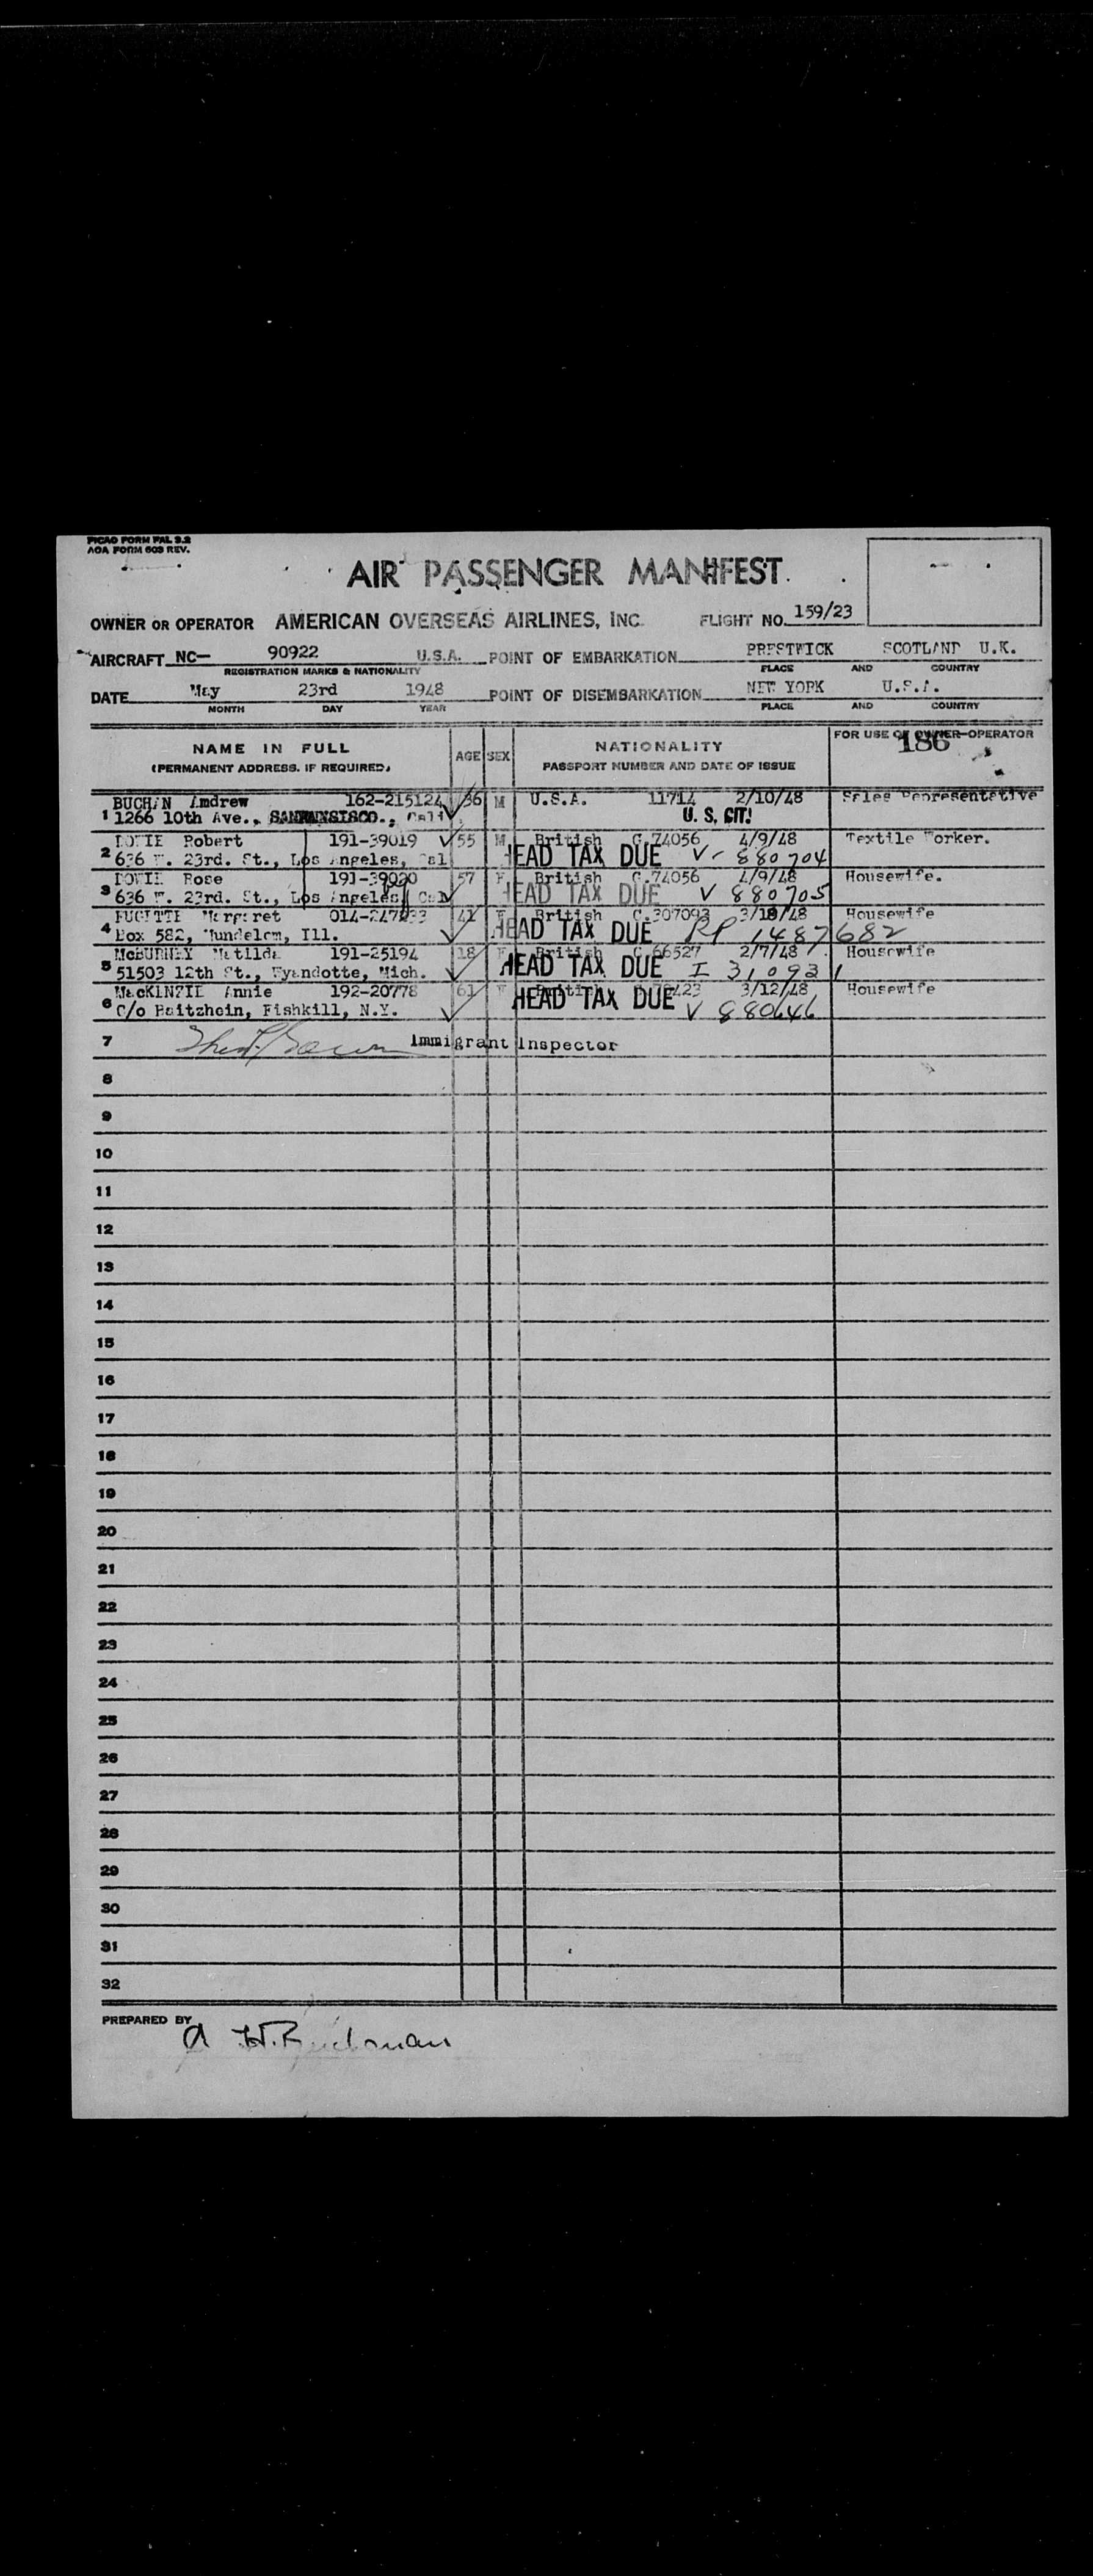 PICAO FORM PAL 3.2
AOA FORM 603 REV.
AIR PASSENGER MANIFEST
OWNER OR OPERATOR AMERICAN OVERSEAS AIRLINES, INC. FLIGHT NO. 159/23
AIRCRAFT NC— 90922 U.S.A. POINT OF EMBARKATION PRESTWICK SCOTLAND U.K.
REGISTRATION MARKS & NATIONALITY PLACE AND COUNTRY
DATE May 23rd 1948 POINT OF DISEMBARKATION NEW YORK U.S.A.
MONTH DAY YEAR PLACE AND COUNTRY
NAME IN FULL AGE SEX NATIONALITY FOR USE OF OWNER-OPERATOR
186
(PERMANENT ADDRESS. IF REQUIRED) PASSPORT NUMBER AND DATE OF ISSUE
BUCHAN Andrew 162-215124 36 M U.S.A. 11714 2/10/48 Sales Representative
1 1266 10th Ave., Cali U. S. CIT.
Robert 191-39019 55 M British C.74056 4/9/48 Textile Worker.
2 636 W. 23rd. St., Los Angeles, Cal HEAD TAX DUE V- 880704
Rose 191-39020 57 F British C.74056 4/9/48 Housewife.
3 636 W. 23rd. St., Los Angeles, Cal HEAD TAX DUE V 880705
Margaret 41 F British C.307093 3/18/48 Housewife
4 Box 582, Mundelem, Ill. HEAD TAX DUE RP 1487682
McBURNEY Matilda 191-25194 18 F British C.66527 2/7/48 Housewife
5 51503 12th St., Wyandotte, Mich. HEAD TAX DUE I 310931
MacKENZIE Annie 192-20778 61 F British 3/12/48 Housewife
6 C/o Baitzhein, Fishkill, N.Y. HEAD TAX DUE V 880646
7 Immigrant Inspector
8
9
10
11
12
13
14
15
16
17
18
19
20
21
22
23
24
25
26
27
28
29
30
31
32
PREPARED BY